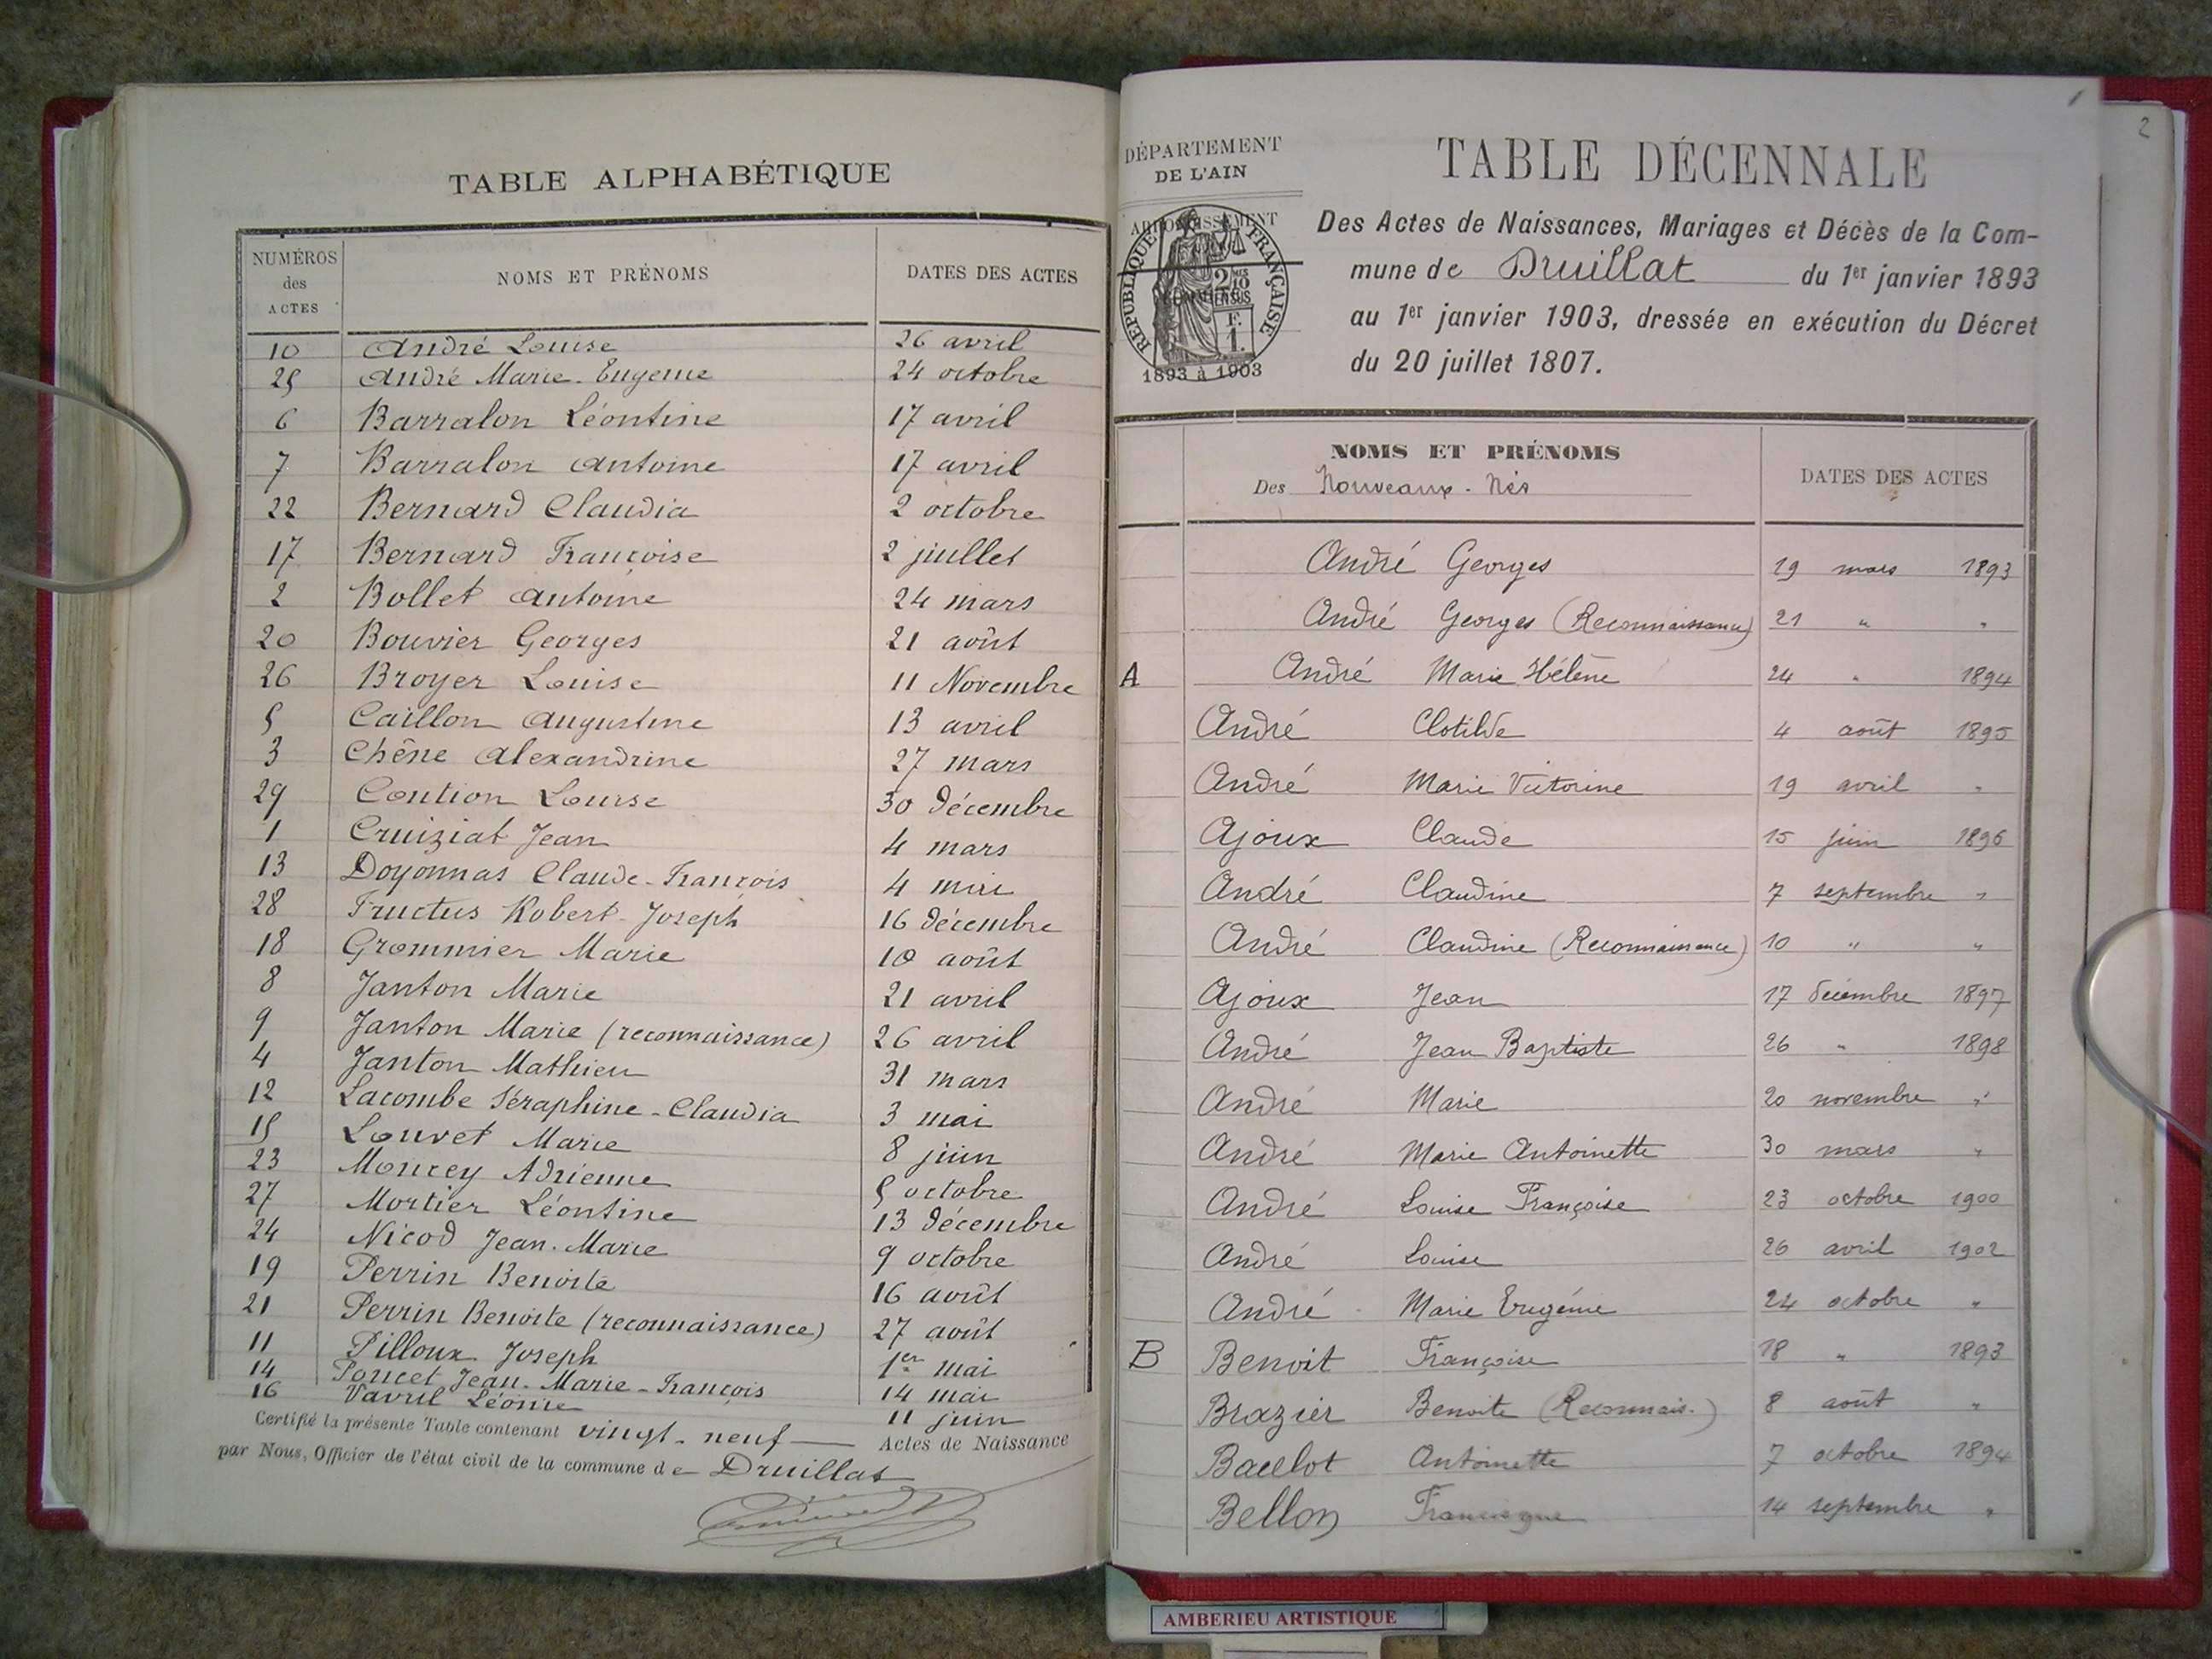 TABLE ALPHABÉTIQUE
NUMÉROS des ACTES NOMS ET PRÉNOMS DATES DES ACTES
10 André Louise 26 avril
25 André Marie-Eugenie 24 octobre
6 Barralon Léontine 17 avril
7 Barralon Antoine 17 avril
22 Bernard Claudia 2 octobre
17 Bernard Françoise 2 juillet
2 Bollet Antoine 24 mars
20 Bouvier Georges 21 août
26 Broyer Louise 11 Novembre
5 Caillon Augustine 13 avril
3 Chêne Alexandrine 27 mars
29 Contion Louise 30 décembre
1 Cruiziat Jean 4 mars
13 Doyonnas Claude-François 4 mai
28 Fructus Robert-Joseph 16 décembre
18 Grommier Marie 10 août
8 Janton Marie 21 avril
9 Janton Marie (reconnaissance) 26 avril
4 Janton Mathieu 31 mars
12 Lacombe Séraphine-Claudia 3 mai
15 Louvet Marie 8 juin
23 Moncey Adrienne 5 octobre
27 Mortier Léontine 13 décembre
24 Nicod Jean-Marie 9 octobre
19 Perrin Benoite 16 août
21 Perrin Benoite (reconnaissance) 27 août
11 Pilloux Joseph 1er mai
14 Poncet Jean-Marie-François 14 mai
16 Vavril Léonie 11 juin
Certifié la présente Table contenant vingt-neuf Actes de Naissance
par Nous, Officier de l'état civil de la commune de Druillat
1
2
DÉPARTEMENT
DE L'AIN
ARRONDISSEMENT
RÉPUBLIQUE FRANÇAISE
2 10
EN SUS
F.
1.
1893 à 1903
TABLE DÉCENNALE
Des Actes de Naissances, Mariages et Décès de la Com-
mune de Druillat du 1er janvier 1893
au 1er janvier 1903, dressée en exécution du Décret
du 20 juillet 1807.
NOMS ET PRÉNOMS
Des Nouveaux-Nés DATES DES ACTES
André Georges 19 mars 1893
André Georges (Reconnaissance) 21 " "
A André Marie Hélène 24 " 1894
André Clotilde 4 août 1895
André Marie Victorine 19 avril "
Ajoux Claude 15 juin 1896
André Claudine 7 septembre "
André Claudine (Reconnaissance) 10 " "
Ajoux Jean 17 décembre 1897
André Jean Baptiste 26 " 1898
André Marie 20 novembre "
André Marie Antoinette 30 mars "
André Louise Françoise 23 octobre 1900
André Louise 26 avril 1902
André Marie Eugénie 24 octobre "
B Benoit Françoise 18 " 1893
Brazier Benoite (Reconnais.) 8 août "
Bacelot Antoinette 7 octobre 1894
Bellon Francisque 14 septembre "
AMBERIEU ARTISTIQUE